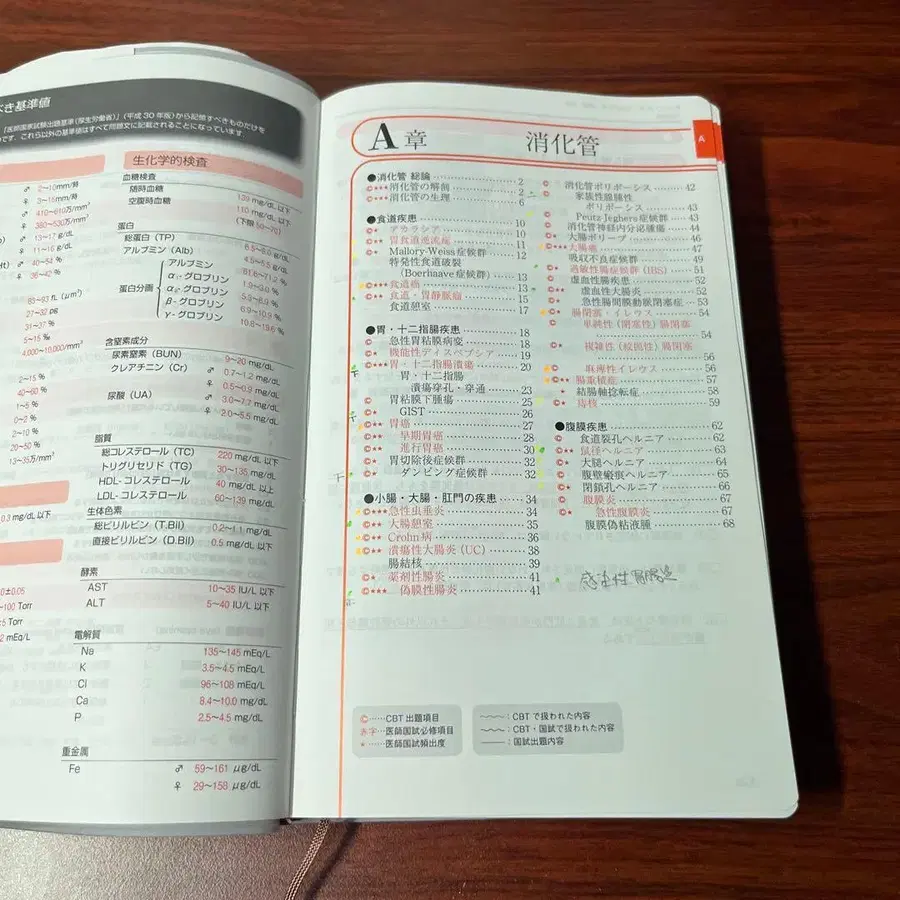 べき基準値
「医師国家試験出題基準(厚生労働省)」(平成 30 年版)から記憶すべきものだけを
です。これら以外の基準値はすべて問題文に記載されることになっています
♂ 2〜10mm/時
♀ 3〜15mm/時
♂ 410〜610万/mm³
♀ 380〜530万/mm³
♂ 13〜17 g/dL
♀ 11〜16 g/dL
♂ 40〜54 %
♀ 36〜42 %
83〜93 fL (μm³)
27〜32 pg
31〜37 %
5〜15 ‰
4,000〜10,000/mm³
2〜15 %
40〜60 %
1〜5 %
0〜2 %
2〜10 %
20〜50 %
13〜35万/mm³
0.3 mg/dL 以下
0±0.05
〜100 Torr
5 Torr
2 mEq/L
生化学的検査
血糖検査
随時血糖 139 mg/dL 以下
空腹時血糖 110 mg/dL 以下
(下限 50〜70)
蛋白
総蛋白 (TP) 6.5〜8.0 g/dL
アルブミン (Alb) 4.5〜5.5 g/dL
蛋白分画
アルブミン
α₁-グロブリン
α₂-グロブリン
β-グロブリン 6.9〜10.9 %
γ-グロブリン 10.8〜19.6 %
含窒素成分
尿素窒素 (BUN) 9〜20 mg/dL
クレアチニン (Cr) ♂ 0.7〜1.2 mg/dL
♀ 0.5〜0.9 mg/dL
尿酸 (UA) ♂ 3.0〜7.7 mg/dL
♀ 2.0〜5.5 mg/dL
脂質
総コレステロール (TC) 220 mg/dL 以下
トリグリセリド (TG) 30〜135 mg/dL
HDL-コレステロール 40 mg/dL 以上
LDL-コレステロール 60〜139 mg/dL
生体色素
総ビリルビン (T.Bil) 0.2〜1.1 mg/dL
直接ビリルビン (D.Bil) 0.5 mg/dL 以下
酵素
AST 10〜35 IU/L 以下
ALT 5〜40 IU/L 以下
電解質
Na 135〜145 mEq/L
K 3.5〜4.5 mEq/L
Cl 96〜108 mEq/L
Ca 8.4〜10.0 mg/dL
P 2.5〜4.5 mg/dL
重金属
Fe ♂ 59〜161 μg/dL
♀ 29〜158 μg/dL
A章 消化管
A
●消化管 総論 2
Ⓒ★★★消化管の解剖 2
Ⓒ★★★消化管の生理 6
●食道疾患 10
Ⓒ★ アカラシア 10
Ⓒ★★ 胃食道逆流症 11
Ⓒ★ Mallory-Weiss症候群 12
特発性食道破裂
(Boerhaave症候群) 13
Ⓒ★★★食道癌 13
Ⓒ★ 食道・胃静脈瘤 15
食道憩室 17
●胃・十二指腸疾患 18
Ⓒ 急性胃粘膜病変 18
Ⓒ★ 機能性ディスペプシア 19
Ⓒ★★★胃・十二指腸潰瘍 20
胃・十二指腸
潰瘍穿孔・穿通 23
Ⓒ★ 胃粘膜下腫瘍 25
Ⓒ★ GIST 26
Ⓒ★★ 胃癌 27
Ⓒ★★ 早期胃癌 28
Ⓒ★★ 進行胃癌 30
Ⓒ★ 胃切除後症候群 32
Ⓒ★ ダンピング症候群 32
●小腸・大腸・肛門の疾患 34
Ⓒ★★★急性虫垂炎 34
Ⓒ★ 大腸憩室 35
Ⓒ★★ Crohn病 36
Ⓒ★★★潰瘍性大腸炎 (UC) 38
腸結核 39
Ⓒ★ 薬剤性腸炎 41
Ⓒ★★★ 偽膜性腸炎 41
Ⓒ 消化管ポリポーシス 42
Ⓒ 家族性腺腫性
ポリポーシス 43
Ⓒ Peutz-Jeghers症候群 43
Ⓒ 消化管神経内分泌腫瘍 44
Ⓒ★ 大腸ポリープ 46
Ⓒ★★★大腸癌 47
吸収不良症候群 49
Ⓒ★ 過敏性腸症候群 (IBS) 51
虚血性腸疾患 52
Ⓒ★★ 虚血性大腸炎 52
Ⓒ★ 急性腸間膜動脈閉塞症 53
Ⓒ★ 腸閉塞・イレウス 54
Ⓒ 単純性 (閉塞性) 腸閉塞
54
Ⓒ★ 複雑性 (絞扼性) 腸閉塞
56
Ⓒ 麻痺性イレウス 56
Ⓒ★★ 腸重積症 57
★ 結腸軸捻転症 58
Ⓒ★ 痔核 59
●腹膜疾患 62
Ⓒ 食道裂孔ヘルニア 62
Ⓒ★★ 鼠径ヘルニア 63
Ⓒ★ 大腿ヘルニア 64
Ⓒ 腹壁瘢痕ヘルニア 65
Ⓒ★ 閉鎖孔ヘルニア 66
Ⓒ 腹膜炎 67
Ⓒ★ 急性腹膜炎 67
腹膜偽粘液腫 68
感染性胃腸炎
Ⓒ……CBT 出題項目
赤字…医師国試必修項目
★……医師国試頻出度
：CBT で扱われた内容
：CBT・国試で扱われた内容
：国試出題内容